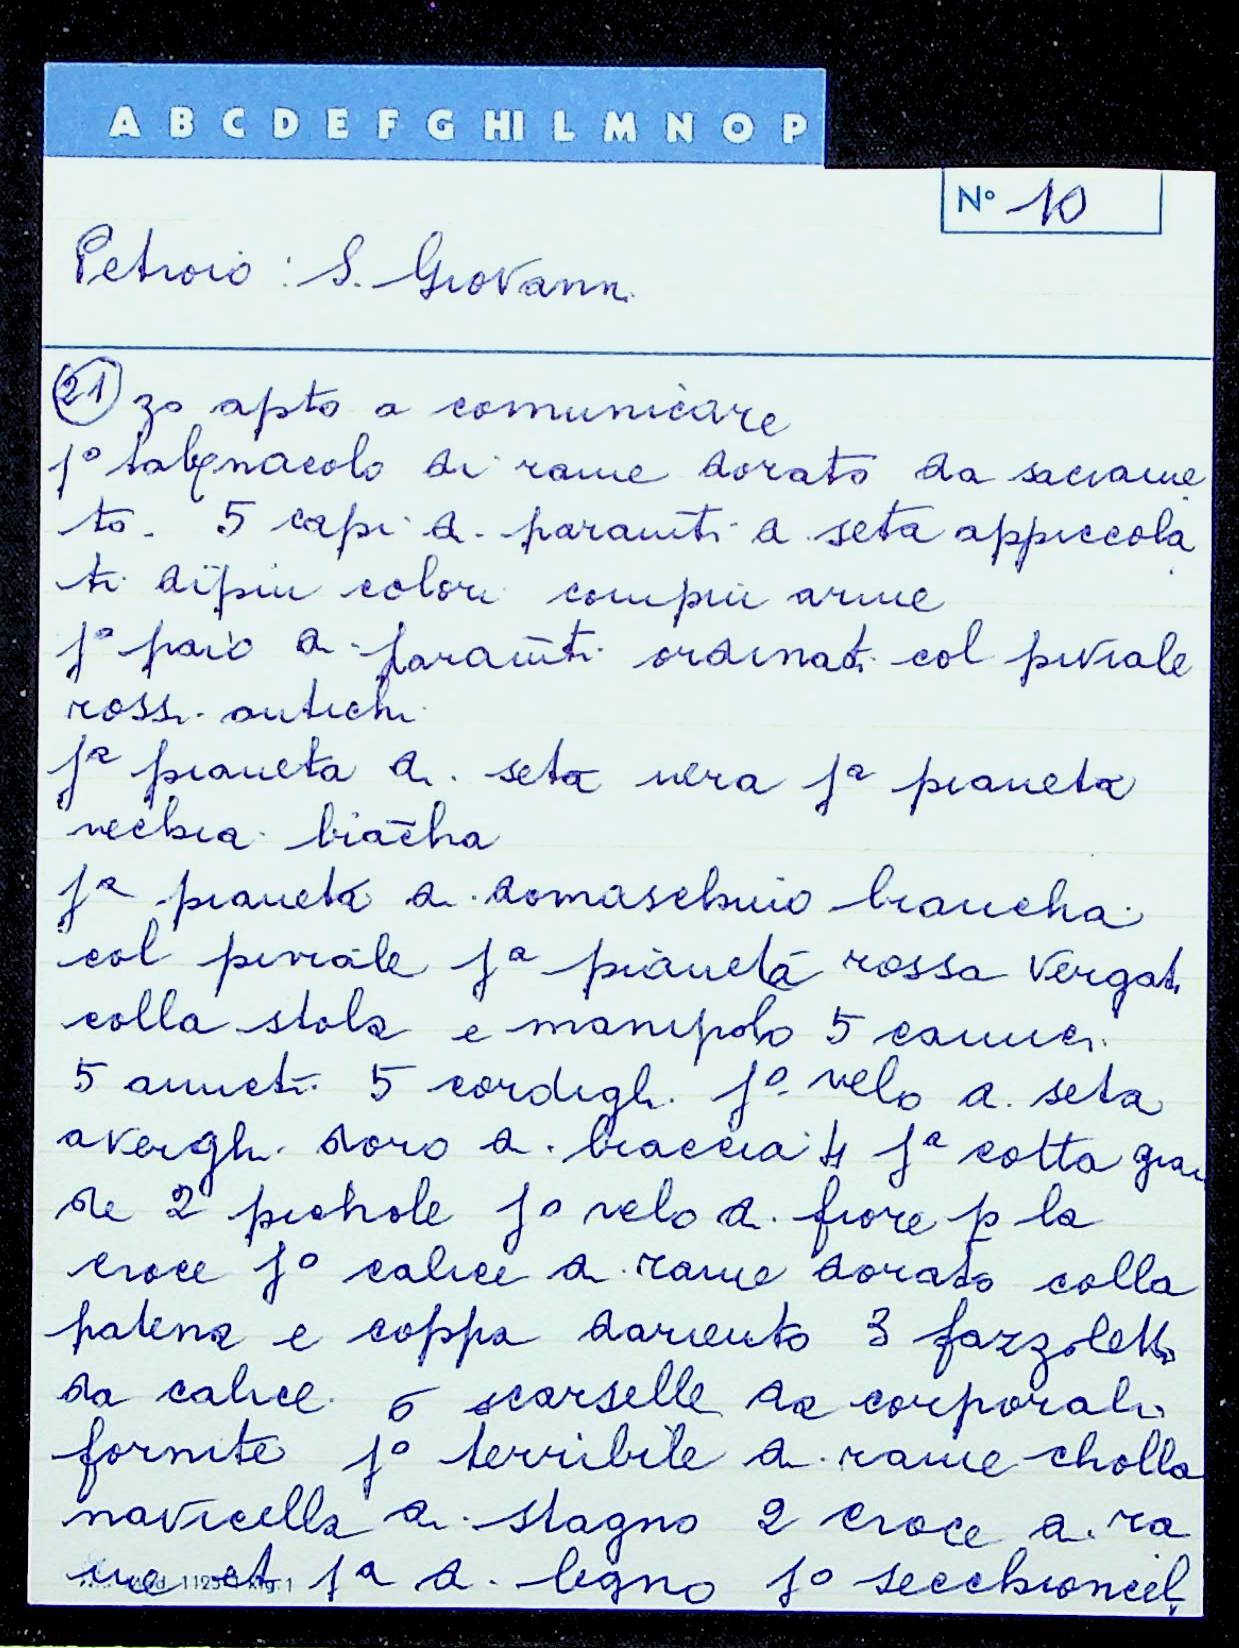 A B C D E F G HI L M N O P
N° 10
Petroio: S. Giovanni
21 zo apto a comunicare
1° tabnacolo di rame dorato da sacrame
to. 5 capi di paramti di seta appiccola
ti di piu colori con piu arme
1° paio di paramti ordinati col piviale
rossi antichi
1ª pianeta di seta nera 1ª pianeta
vechia biācha
1ª pianeta di domaschino biancha
col piviale 1ª pianeta rossa vergat.
colla stola e manipolo 5 camici
5 amicti 5 cordigli 1° velo di seta
a verghe doro di braccia 4 1ª cotta gran
de 2 pichole 1° velo di fiore p la
croce 1° calice di rame dorato colla
patena e coppa dariento 3 fazzoletti
da calice 6 scarselle da corporali
fornite 1° terribile di rame cholla
navicella di stagno 2 croce di ra
me et 1ª di legno 1° secchioncel